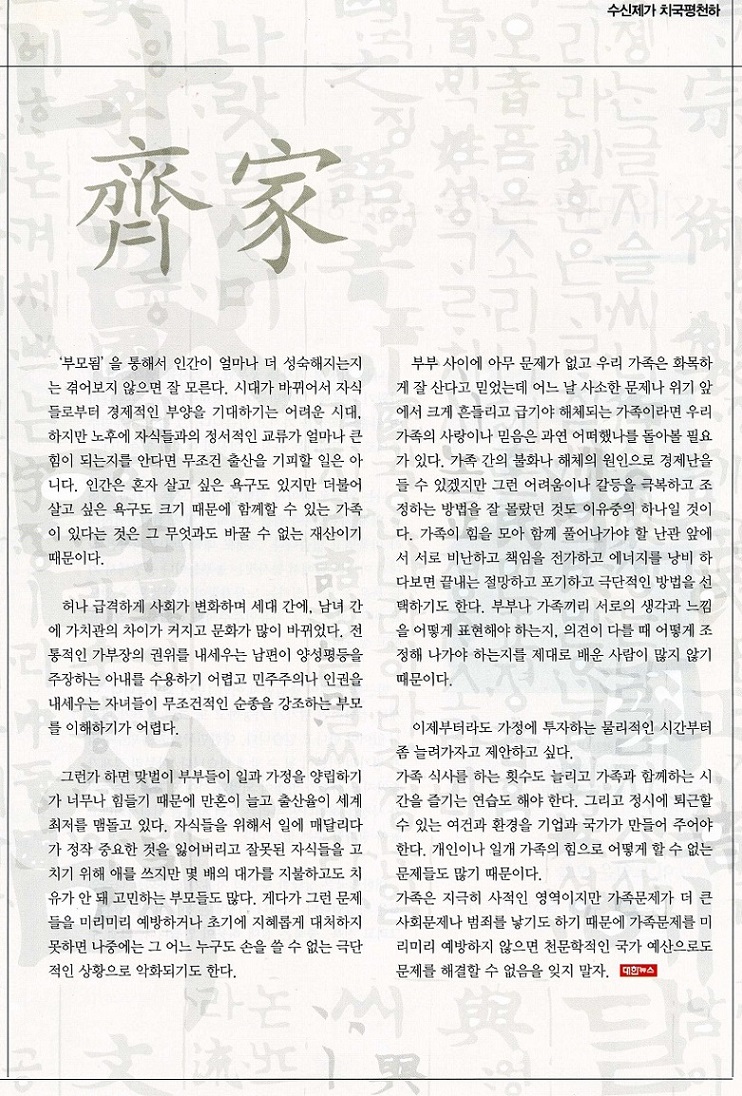 수신제가 치국평천하
齊家
‘부모됨’을 통해서 인간이 얼마나 더 성숙해지는지
는 겪어보지 않으면 잘 모른다. 시대가 바뀌어서 자식
들로부터 경제적인 부양을 기대하기는 어려운 시대,
하지만 노후에 자식들과의 정서적인 교류가 얼마나 큰
힘이 되는지를 안다면 무조건 출산을 기피할 일은 아
니다. 인간은 혼자 살고 싶은 욕구도 있지만 더불어
살고 싶은 욕구도 크기 때문에 함께할 수 있는 가족
이 있다는 것은 그 무엇과도 바꿀 수 없는 재산이기
때문이다.
허나 급격하게 사회가 변화하며 세대 간에, 남녀 간
에 가치관의 차이가 커지고 문화가 많이 바뀌었다. 전
통적인 가부장의 권위를 내세우는 남편이 양성평등을
주장하는 아내를 수용하기 어렵고 민주주의나 인권을
내세우는 자녀들이 무조건적인 순종을 강조하는 부모
를 이해하기가 어렵다.
그런가 하면 맞벌이 부부들이 일과 가정을 양립하기
가 너무나 힘들기 때문에 만혼이 늘고 출산율이 세계
최저를 맴돌고 있다. 자식들을 위해서 일에 매달리다
가 정작 중요한 것을 잃어버리고 잘못된 자식들을 고
치기 위해 애를 쓰지만 몇 배의 대가를 지불하고도 치
유가 안 돼 고민하는 부모들도 많다. 게다가 그런 문제
들을 미리미리 예방하거나 초기에 지혜롭게 대처하지
못하면 나중에는 그 어느 누구도 손을 쓸 수 없는 극단
적인 상황으로 악화되기도 한다.
부부 사이에 아무 문제가 없고 우리 가족은 화목하
게 잘 산다고 믿었는데 어느 날 사소한 문제나 위기 앞
에서 크게 흔들리고 급기야 해체되는 가족이라면 우리
가족의 사랑이나 믿음은 과연 어떠했나를 돌아볼 필요
가 있다. 가족 간의 불화나 해체의 원인으로 경제난을
들 수 있겠지만 그런 어려움이나 갈등을 극복하고 조
정하는 방법을 잘 몰랐던 것도 이유중의 하나일 것이
다. 가족이 힘을 모아 함께 풀어나가야 할 난관 앞에
서 서로 비난하고 책임을 전가하고 에너지를 낭비 하
다보면 끝내는 절망하고 포기하고 극단적인 방법을 선
택하기도 한다. 부부나 가족끼리 서로의 생각과 느낌
을 어떻게 표현해야 하는지, 의견이 다를 때 어떻게 조
정해 나가야 하는지를 제대로 배운 사람이 많지 않기
때문이다.
이제부터라도 가정에 투자하는 물리적인 시간부터
좀 늘려가자고 제안하고 싶다.
가족 식사를 하는 횟수도 늘리고 가족과 함께하는 시
간을 즐기는 연습도 해야 한다. 그리고 정시에 퇴근할
수 있는 여건과 환경을 기업과 국가가 만들어 주어야
한다. 개인이나 일개 가족의 힘으로 어떻게 할 수 없는
문제들도 많기 때문이다.
가족은 지극히 사적인 영역이지만 가족문제가 더 큰
사회문제나 범죄를 낳기도 하기 때문에 가족문제를 미
리미리 예방하지 않으면 천문학적인 국가 예산으로도
문제를 해결할 수 없음을 잊지 말자. 대한뉴스